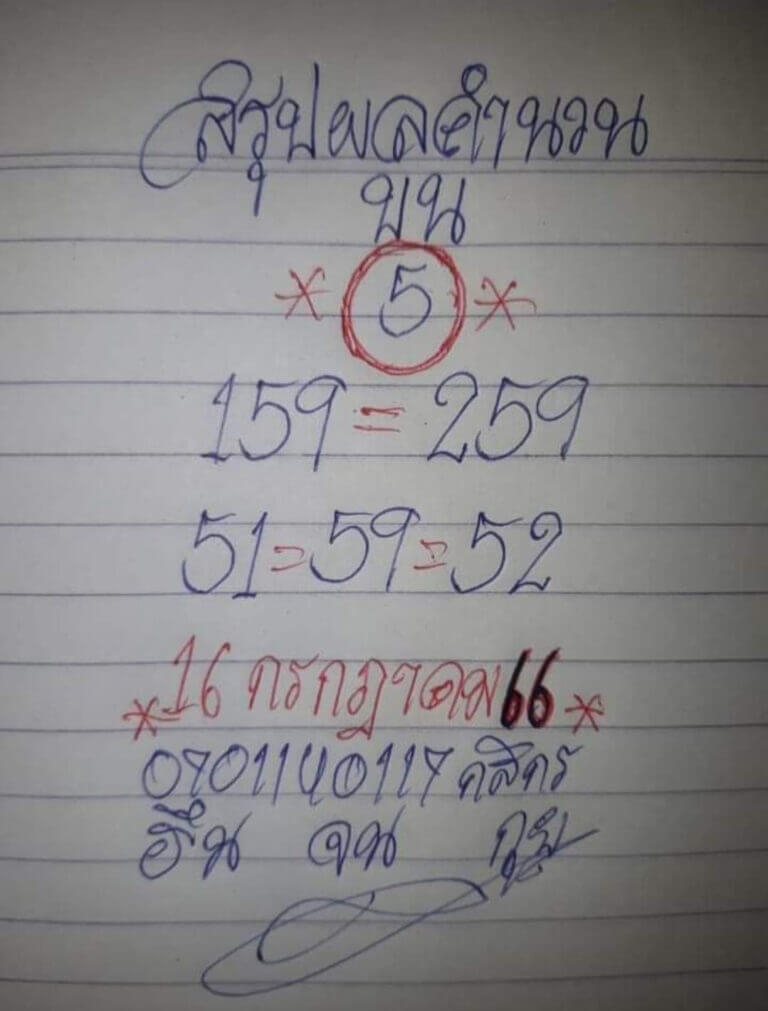 สรุปผลคำนวน
บน
* 5 *
159 = 259
51 = 59 = 52
* 16 กรกฎาคม 66 *
0701140117 กสิกร